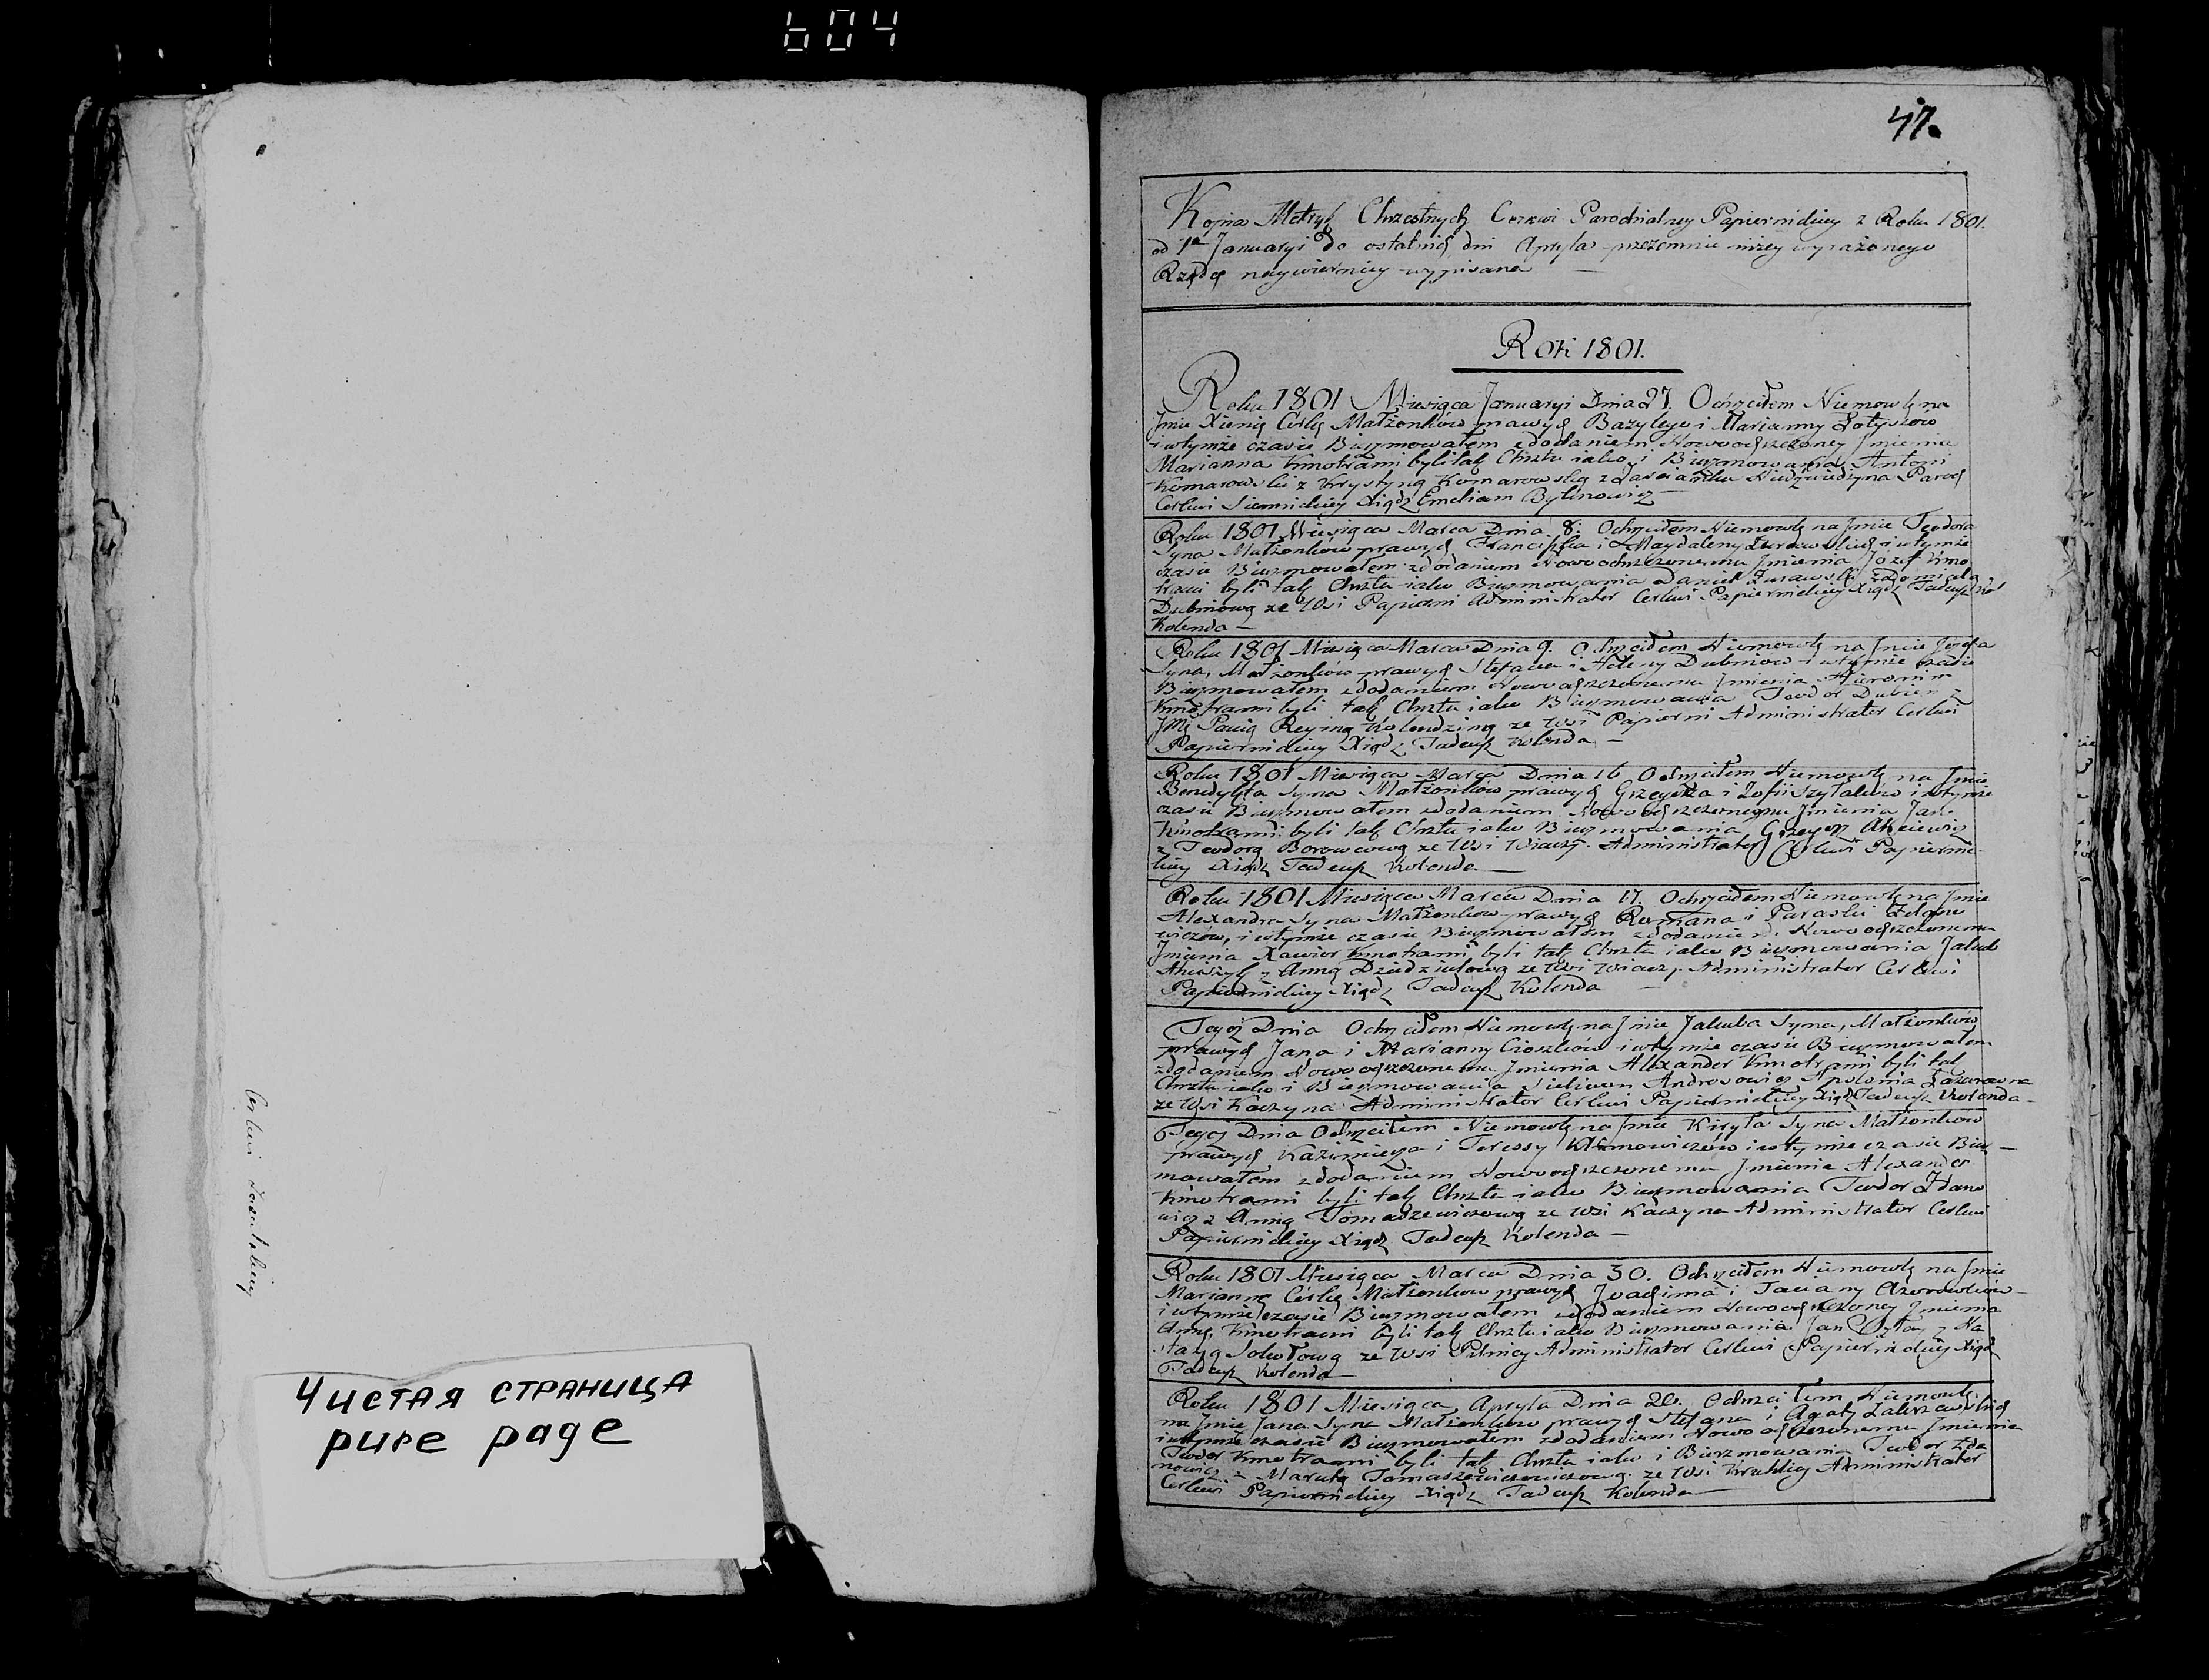 604
47.
Kopia Metryk Chrzestnych Cerkwi Parochialney Papiernickiey z Roku 1801.
od 1º Januaryi do ostatnich dni Apryla przezemnie niżey wyrażonego
Rządcę naywierniey wypisana
Rok 1801.
Roku 1801 Miesiąca Januaryi Dnia 27. Ochrzciłem Niemowlę na
Jmie Xienię Córkę Małżonków prawych Bazylego i Marianny Łotyszów
i wtymże czasie Bierzmowałem zdodaniem Nowoochrzczoney Jmienia
Marianna Kmotrami byli tak Chrztu iako i Bierzmowania Antoni
Komarowski z Krystyną Komarowską z Zascianku Niedzwiedzyna Paroch
Cerkwi Xiądz Emeliam Bylinowicz
Roku 1801 Miesiąca Marca Dnia 8. Ochrzciłem Niemowlę na Jmie Teodora
Syna Małżonków prawych Franciszka i Magdaleny Żurawskich i wtymże
czasie Bierzmowałem zdodaniem Nowoochrzczonemu Jmienia Józef Kmo
trami byli tak Chrztu iako Bierzmowania Daniel Żurawski
Dubniową ze Wsi Papierni Administrator Cerkwi Papiernickiey Xiądz Tadeusz
Kolenda
Roku 1801 Miesiąca Marca Dnia 9. Ochrzciłem Niemowlę na Jmie Jozefa
Syna, Małżonków prawych Stefana i Heleny Dubniów i wtymże czasie
Bierzmowałem zdodaniem Nowoochrzczonemu Jmienia Hieronim
Kmotrami byli tak Chrztu iako Bierzmowania Teodor Dubien z
Jmś Panią Reginą Kolendziną ze Wsi Papierni Administrator Cerkwi
Papiernickiey Xiądz Tadeusz Kolenda
Roku 1801 Miesiąca Marca Dnia 16 Ochrzciłem Niemowlę na Jmie
Benedykta Syna Małżonków prawych Grzegorza i Zofii Szytalów i wtymże
czasie Bierzmowałem zdodaniem Nowoochrzczonemu Jmienia Jan
Kmotrami byli tak Chrztu iako Bierzmowania Grzegorz
z Teodorą Borowcową ze Wsi Wiaczy. Administrator Cerkwi Papierni
ckiey Xiądz Tadeusz Kolenda
Roku 1801 Miesiąca Marca Dnia 17. Ochrzciłem Niemowlę na Jmie
Alexandra Syna Małżonków prawych Romana i Paraski Zdano
wiczów, i wtymże czasie Bierzmowałem zdodaniem Nowoochrzczonemu
Jmienia Xawier Kmotrami byli tak Chrztu iako Bierzmowania Jakub
z Anną Dziadziulową ze Wsi Wiaczy. Administrator Cerkwi
Papiernickiey Xiądz Tadeusz Kolenda
Tegoż Dnia Ochrzciłem Niemowlę na Jmie Jakuba Syna, Małżonków
prawych Jana i Marianny Cioszków i wtymże czasie Bierzmowałem
zdodaniem Nowoochrzczonemu Jmienia Alexander Kmotrami byli tak
Chrztu iako i Bierzmowania Androsowicz Łazarowna
ze Wsi Kaczyna Administrator Cerkwi Papiernickiey Xiądz Tadeusz Kolenda
Tegoż Dnia Ochrzciłem Niemowlę na Jmie Kiryła Syna Małżonków
prawych Kazimierza i Teressy Klimowiczów i wtymże czasie Bier
mowałem zdodaniem Nowoochrzczonemu Jmienie Alexander
Kmotrami byli tak Chrztu iako Bierzmowania Teodor Zdano
wicz z Anną Tomaszewiczową ze Wsi Kaczyna Administrator Cerkwi
Papiernickiey Xiądz Tadeusz Kolenda
Roku 1801 Miesiąca Marca Dnia 30. Ochrzciłem Niemowlę na Jmie
Mariannę Córkę Małżonków prawych Joachima i Taciany
i wtymże czasie Bierzmowałem zdodaniem Nowoochrzczoney Jmienia
Anna Kmotrami byli tak Chrztu iako Bierzmowania Jan z Na
stazyą Sokołową ze Wsi Pilnicy Administrator Cerkwi Papiernickiey Xiądz
Tadeusz Kolenda
Roku 1801 Miesiąca Apryla Dnia 20. Ochrzciłem Niemowlę
na Jmie Jana Syna Małżonków prawych Stefana i Agaty
i wtymże czasie Bierzmowałem zdodaniem Nowoochrzczonemu Jmienia
Teodor Kmotrami byli tak Chrztu iako i Bierzmowania Teodor Zda
nowicz z Marutą ze Wsi Kruhlicy Administrator
Cerkwi Papiernickiey Xiądz Tadeusz Kolenda
Cerkwi
Чистая страница
pure page